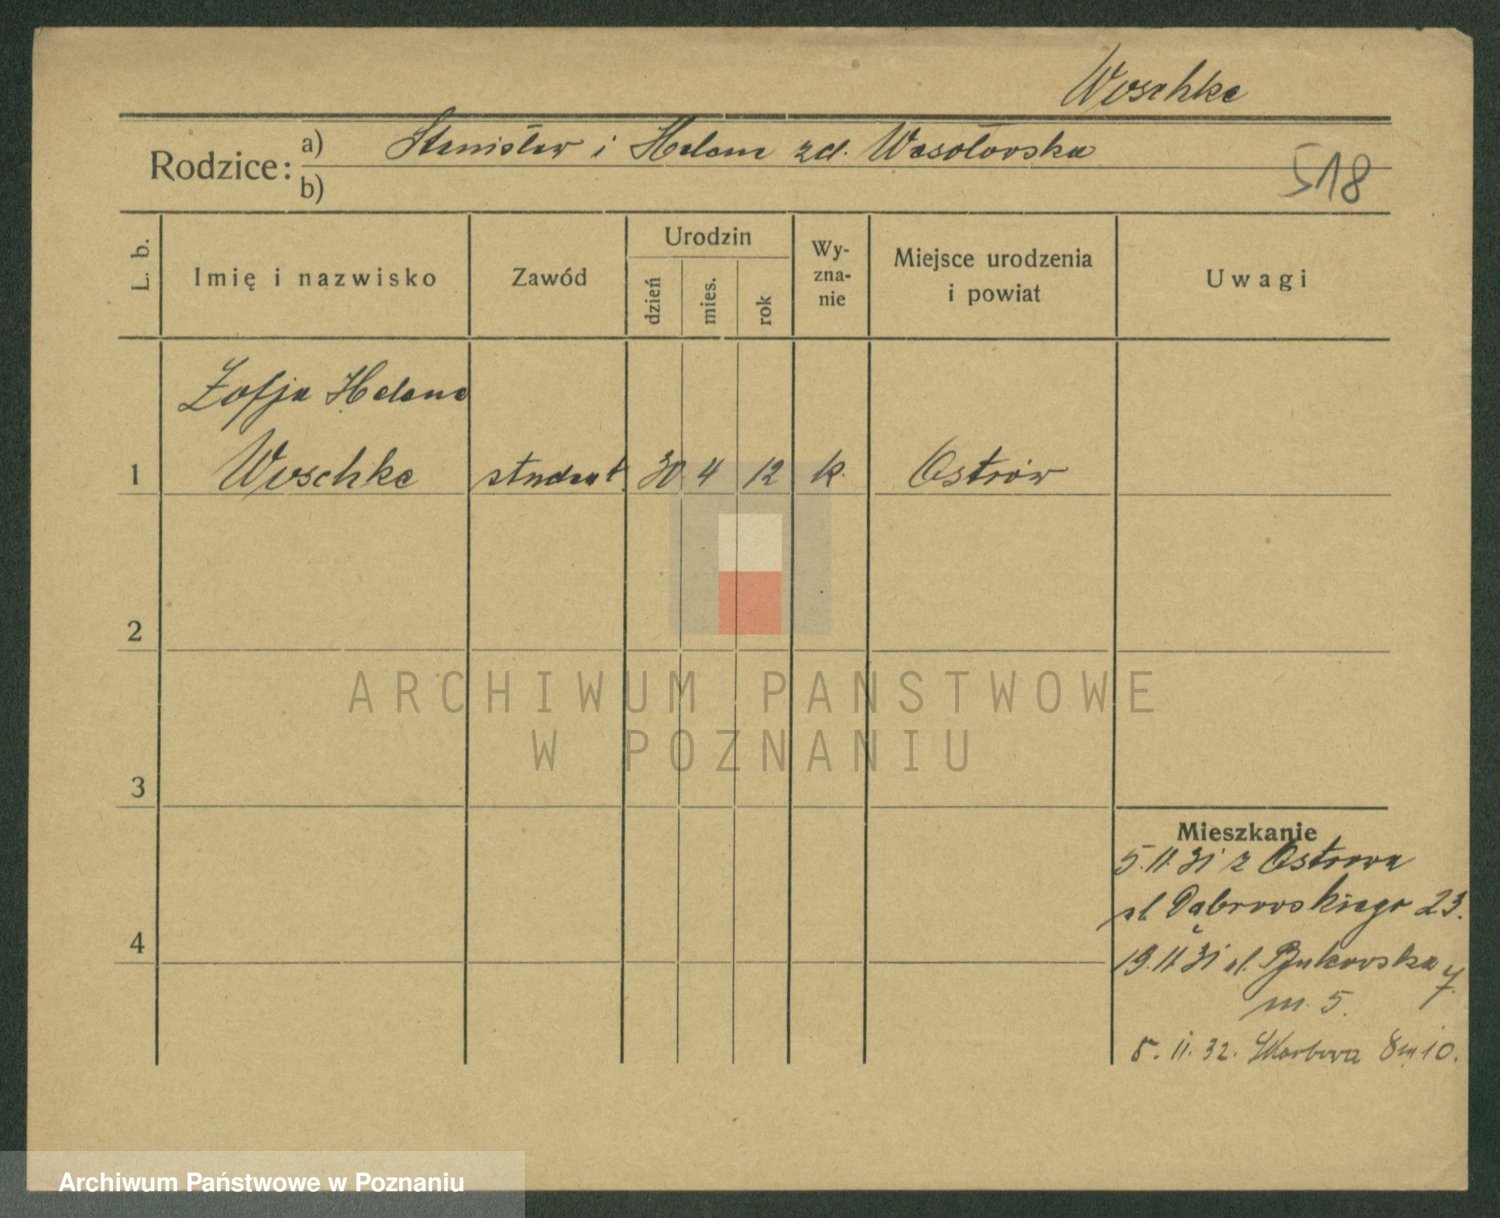 Woschke
Rodzice: a) Stanisław i Helena zd. Wesołowska
b)
518
L. b.
Imię i nazwisko
Zawód
Urodzin
dzień
mies.
rok
Wy-
zna-
nie
Miejsce urodzenia
i powiat
Uwagi
Zofja Helena
1 Woschke student. 30 4 12 k. Ostrów
2
ARCHIWUM PANSTWOWE
W POZNANIU
3
Mieszkanie
5.11.31 z Ostrowa
ul. Dąbrowskiego 23.
4
19.11.31 ul. Bukowska 7.
m. 5.
5. 11. 32. Skarbowa 8 m 10.
Archiwum Państwowe w Poznaniu